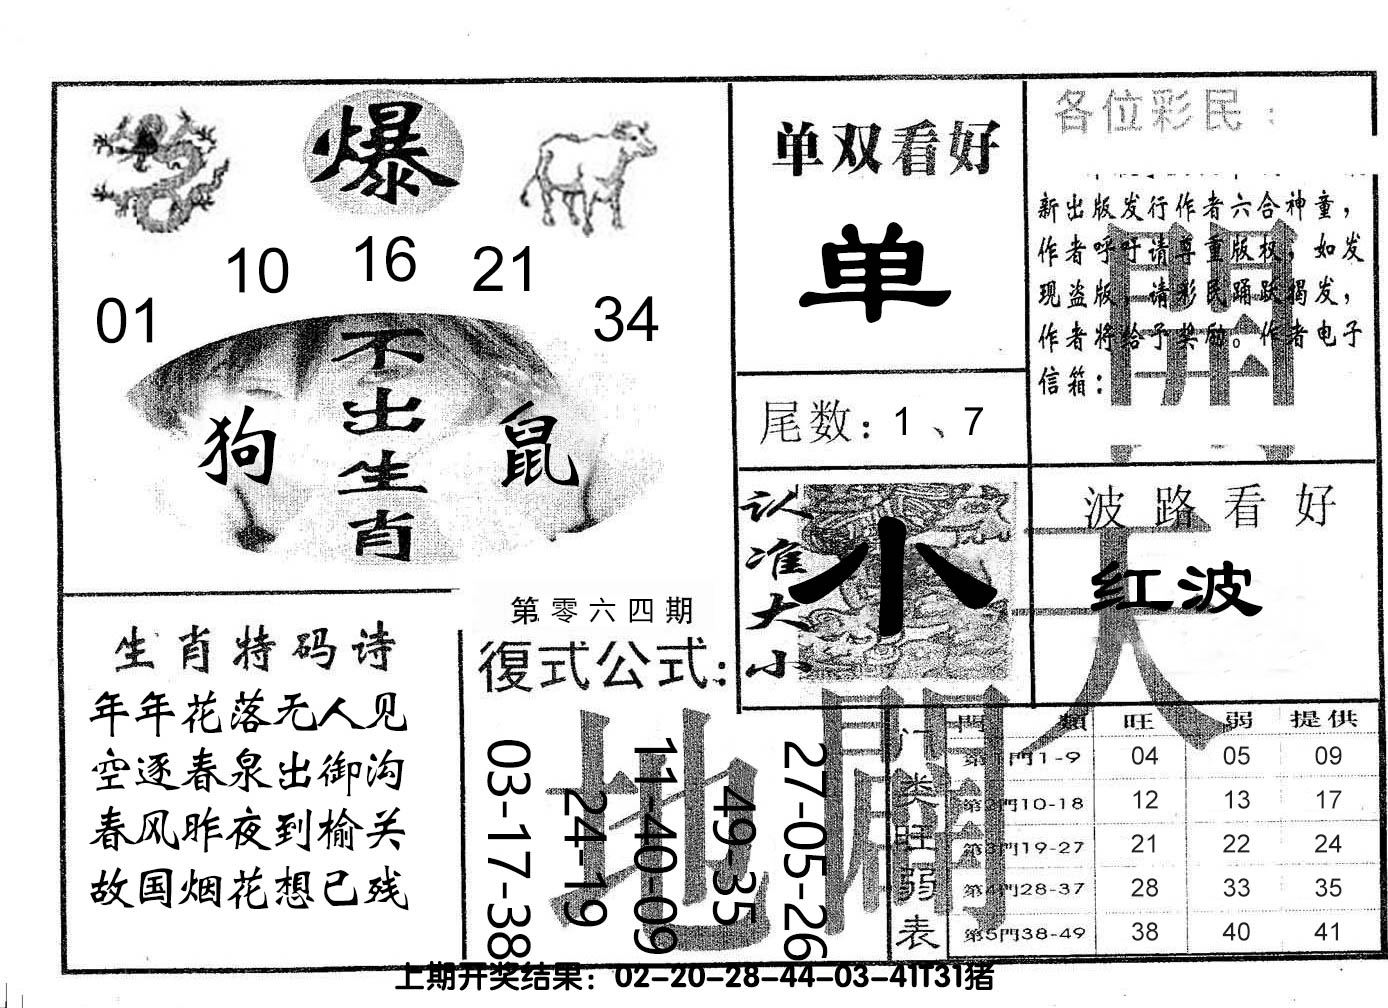 爆
10 16 21
01 34
不出生肖
狗 鼠
单双看好
单
尾数：1、7
各位彩民：
新出版发行作者六合神童，
作者呼吁请尊重版权，如发
现盗版，请彩民踊跃揭发，
作者将给予奖励。作者电子
信箱：
開
认准大小
小
波路看好
红波
天
生肖特码诗
年年花落无人见
空逐春泉出御沟
春风昨夜到榆关
故国烟花想已残
第零六四期
復式公式：
03-17-38
24-19
11-40-09
49-35
27-05-26
地
門类旺弱表
門類 旺 弱 提供
第1門1-9 04 05 09
第2門10-18 12 13 17
第3門19-27 21 22 24
第4門28-37 28 33 35
第5門38-49 38 40 41
上期开奖结果：02-20-28-44-03-41T31猪